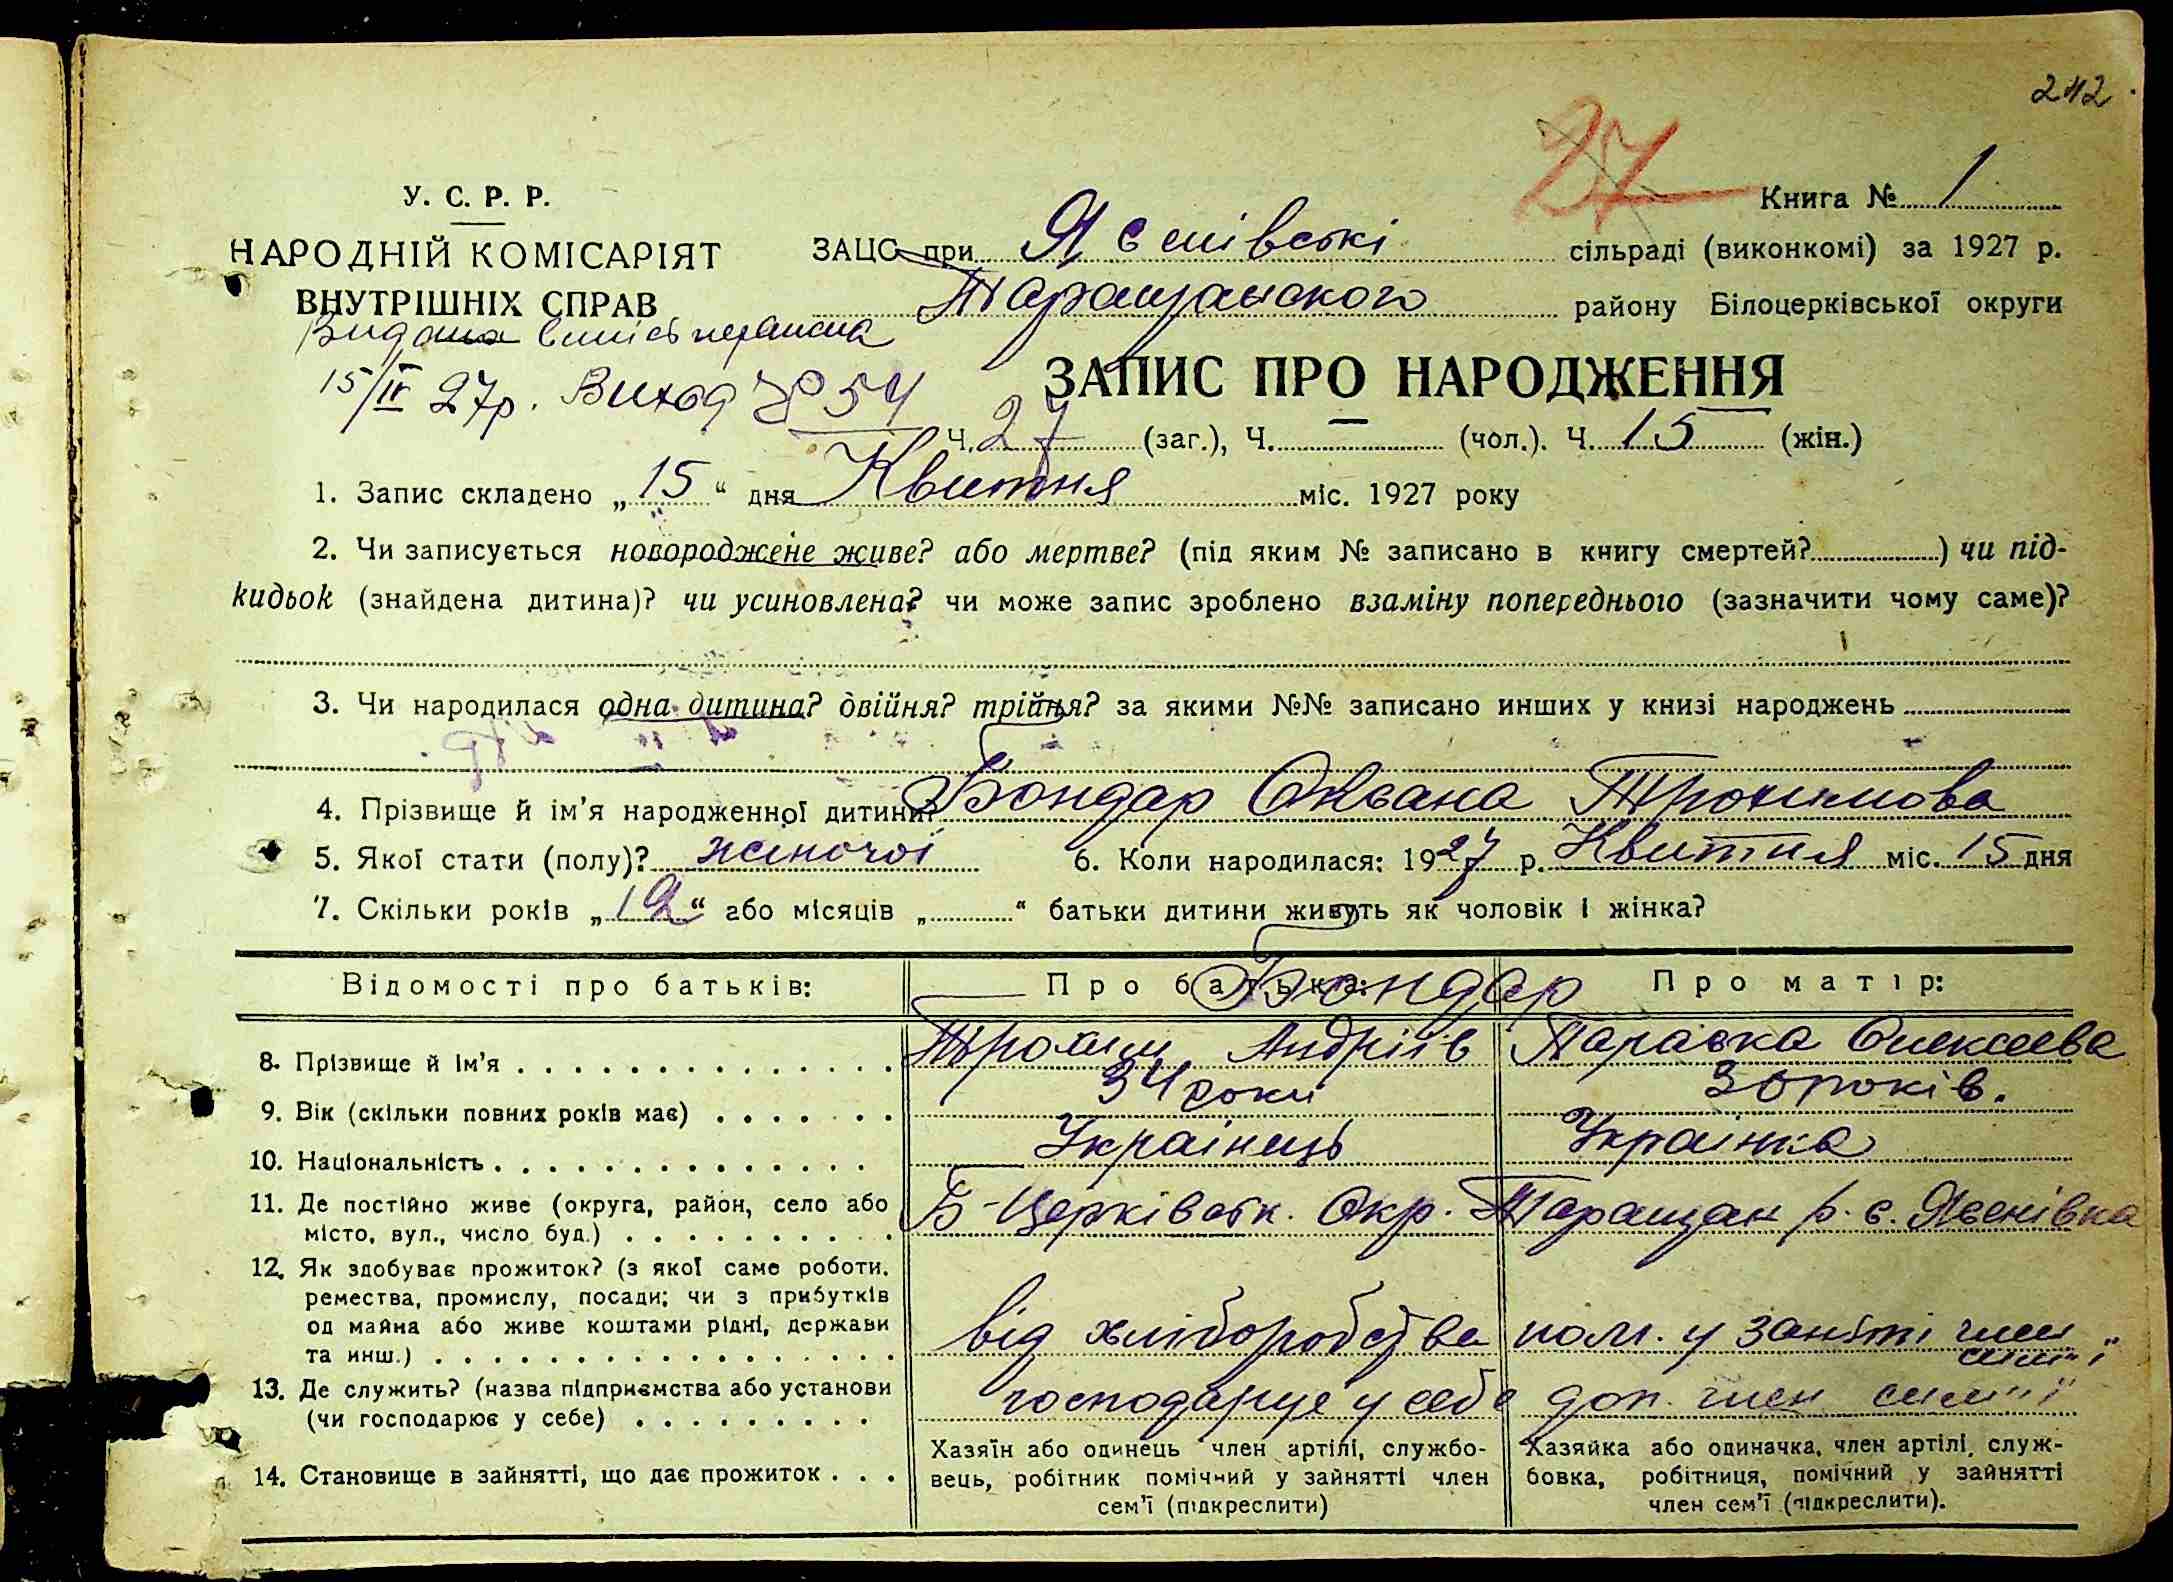 242
27
У. С. Р. Р.
Книга № 1
НАРОДНІЙ КОМІСАРІЯТ
ВНУТРІШНІХ СПРАВ
ЗАЦС при Яснівські сільраді (виконкомі) за 1927 р.
Таращанського району Білоцерківської округи
Видана виписъ
15/IV 27р. Виход № 54
ЗАПИС ПРО НАРОДЖЕННЯ
Ч. 27 (заг.), Ч. — (чол.). Ч. 15 (жін.)
1. Запис складено „ 15 “ дня Квитня міс. 1927 року
2. Чи записується новороджене живе? або мертве? (під яким № записано в книгу смертей? ) чи під-
кидьок (знайдена дитина)? чи усиновлена? чи може запис зроблено взаміну попереднього (зазначити чому саме)?
3. Чи народилася одна дитина? двійня? трійня? за якими №№ записано инших у книзі народжень
4. Прізвище й ім’я народженної дитини? Бондар Оксана Трохимова
5. Якої стати (полу)? жіночої 6. Коли народилася: 1927 р. Квитня міс. 15 дня
7. Скільки років „ 12 “ або місяців „ “ батьки дитини живуть як чоловік і жінка?
Відомості про батьків: Про батька: Про матір:
Бондар
8. Прізвище й ім’я Трохим Андріів Параска Олексеева
9. Вік (скільки повних років має) 34 роки 30 років.
10. Національність Украінець Украінка
11. Де постійно живе (округа, район, село або
місто, вул., число буд.) Б-Церківськ. Окр. Таращан р. с. Яснівка
12. Як здобуває прожиток? (з якої саме роботи,
ремества, промислу, посади; чи з прибутків
од майна або живе коштами рідні, держави
та инш.) від хліборобства пом. у заняті член
сим'ї
13. Де служить? (назва підприємства або установи
(чи господарює у себе) господарує у себе доп. член сим'ї
14. Становище в зайнятті, що дає прожиток
Хазяїн або одинець член артілі, службо-
вець, робітник помічний у зайнятті член
сем’ї (підкреслити)
Хазяйка або одиначка, член артілі, служ-
бовка, робітниця, помічний у зайнятті
член сем’ї (підкреслити).